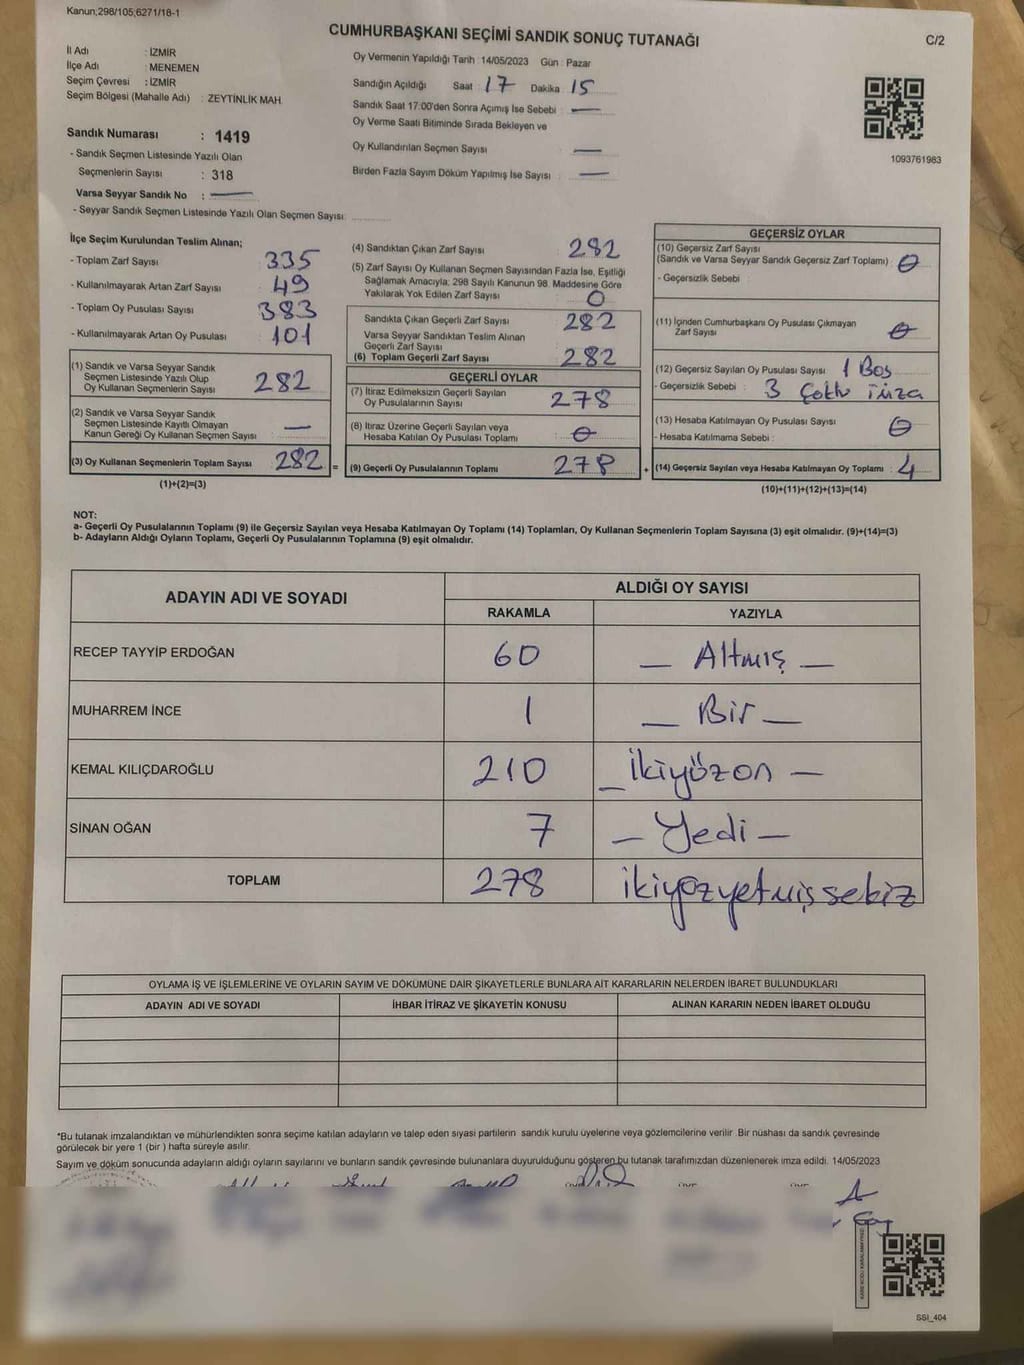 Kanun;298/105;6271/18-1
CUMHURBAŞKANI SEÇİMİ SANDIK SONUÇ TUTANAĞI
C/2
İl Adı : İZMİR
İlçe Adı : MENEMEN
Seçim Çevresi : İZMİR
Seçim Bölgesi (Mahalle Adı) : ZEYTİNLİK MAH.
Sandık Numarası : 1419
- Sandık Seçmen Listesinde Yazılı Olan
Seçmenlerin Sayısı : 318
Varsa Seyyar Sandık No : —
- Seyyar Sandık Seçmen Listesinde Yazılı Olan Seçmen Sayısı:
Oy Vermenin Yapıldığı Tarih :14/05/2023 Gün : Pazar
Sandığın Açıldığı Saat : 17 Dakika : 15
Sandık Saat 17:00'den Sonra Açımış İse Sebebi : —
Oy Verme Saati Bitiminde Sırada Bekleyen ve
Oy Kullandırılan Seçmen Sayısı : —
Birden Fazla Sayım Döküm Yapılmış İse Sayısı : —
1093761983
İlçe Seçim Kurulundan Teslim Alınan;
- Toplam Zarf Sayısı : 335
- Kullanılmayarak Artan Zarf Sayısı : 49
- Toplam Oy Pusulası Sayısı : 383
- Kullanılmayarak Artan Oy Pusulası : 101
(1) Sandık ve Varsa Seyyar Sandık
Seçmen Listesinde Yazılı Olup
Oy Kullanan Seçmenlerin Sayısı : 282
(2) Sandık ve Varsa Seyyar Sandık
Seçmen Listesinde Kayıtlı Olmayan
Kanun Gereği Oy Kullanan Seçmen Sayısı : —
(3) Oy Kullanan Seçmenlerin Toplam Sayısı : 282
(1)+(2)=(3)
=
(4) Sandıktan Çıkan Zarf Sayısı : 282
(5) Zarf Sayısı Oy Kullanan Seçmen Sayısından Fazla İse, Eşitliği
Sağlamak Amacıyla; 298 Sayılı Kanunun 98. Maddesine Göre
Yakılarak Yok Edilen Zarf Sayısı : 0
Sandıkta Çıkan Geçerli Zarf Sayısı : 282
Varsa Seyyar Sandıktan Teslim Alınan
Geçerli Zarf Sayısı :
(6) Toplam Geçerli Zarf Sayısı : 282
GEÇERLİ OYLAR
(7) İtiraz Edilmeksizin Geçerli Sayılan
Oy Pusulalarının Sayısı : 278
(8) İtiraz Üzerine Geçerli Sayılan veya
Hesaba Katılan Oy Pusulası Toplamı : 0
(9) Geçerli Oy Pusulalarının Toplamı : 278
+
GEÇERSİZ OYLAR
(10) Geçersiz Zarf Sayısı
(Sandık ve Varsa Seyyar Sandık Geçersiz Zarf Toplamı) : 0
- Geçersizlik Sebebi :
(11) İçinden Cumhurbaşkanı Oy Pusulası Çıkmayan
Zarf Sayısı : 0
(12) Geçersiz Sayılan Oy Pusulası Sayısı : 1 Boş
- Geçersizlik Sebebi : 3 Çoklu imza
(13) Hesaba Katılmayan Oy Pusulası Sayısı : 0
- Hesaba Katılmama Sebebi :
(14) Geçersiz Sayılan veya Hesaba Katılmayan Oy Toplamı : 4
(10)+(11)+(12)+(13)=(14)
NOT:
a- Geçerli Oy Pusulalarının Toplamı (9) ile Geçersiz Sayılan veya Hesaba Katılmayan Oy Toplamı (14) Toplamları, Oy Kullanan Seçmenlerin Toplam Sayısına (3) eşit olmalıdır. (9)+(14)=(3)
b- Adayların Aldığı Oyların Toplamı, Geçerli Oy Pusulalarının Toplamına (9) eşit olmalıdır.
ADAYIN ADI VE SOYADI
ALDIĞI OY SAYISI
RAKAMLA YAZIYLA
RECEP TAYYİP ERDOĞAN 60 — Altmış —
MUHARREM İNCE 1 — Bir —
KEMAL KILIÇDAROĞLU 210 — İkiyüzon —
SİNAN OĞAN 7 — Yedi —
TOPLAM 278 ikiyüzyetmişsekiz
OYLAMA İŞ VE İŞLEMLERİNE VE OYLARIN SAYIM VE DÖKÜMÜNE DAİR ŞİKAYETLERLE BUNLARA AİT KARARLARIN NELERDEN İBARET BULUNDUKLARI
ADAYIN ADI VE SOYADI İHBAR İTİRAZ VE ŞİKAYETİN KONUSU ALINAN KARARIN NEDEN İBARET OLDUĞU
*Bu tutanak imzalandıktan ve mühürlendikten sonra seçime katılan adayların ve talep eden siyasi partilerin sandık kurulu üyelerine veya gözlemcilerine verilir .Bir nüshası da sandık çevresinde
görülecek bir yere 1 (bir ) hafta süreyle asılır.
Sayım ve döküm sonucunda adayların aldığı oyların sayılarını ve bunların sandık çevresinde bulunanlara duyurulduğunu gösteren bu tutanak tarafımızdan düzenlenerek imza edildi. 14/05/2023
KARE KODU KARALAMAYINIZ
SSI_404